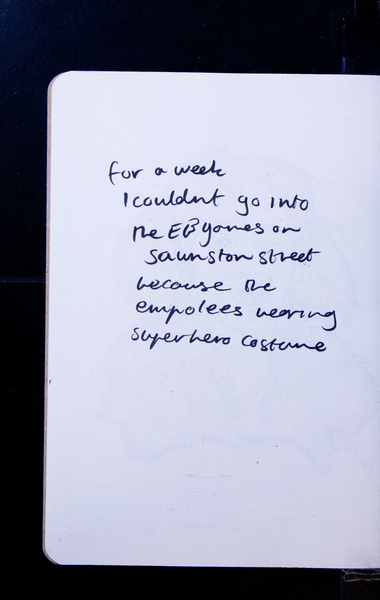 for a week
I couldnt go into
the EB games on
Swanston street
because the
empolees wearing
superhero costume